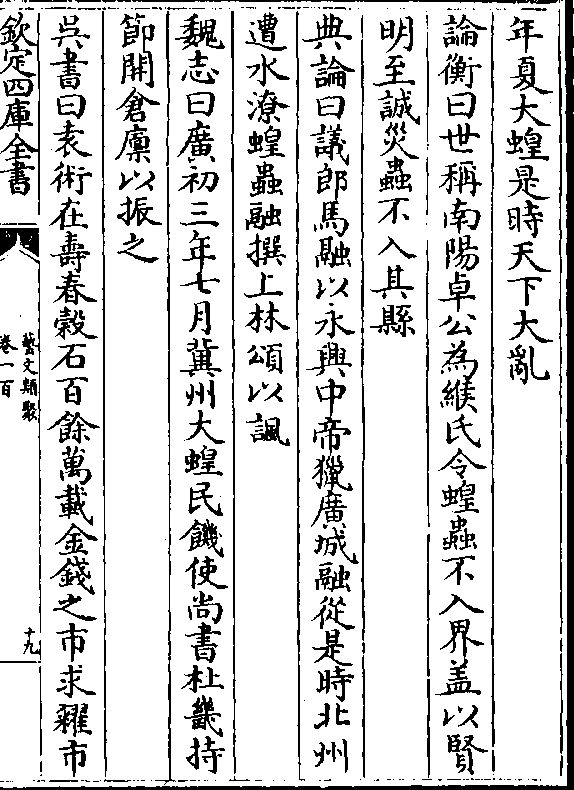 年夏大蝗是時天下大亂
論衡曰世稱南陽卓公為緱氏令蝗蟲不入界盖以賢
明至誠災蟲不入其縣
典論曰議郎馬融以永興中帝獵廣城融從是時北州
遭水潦蝗蟲融撰上林頌以諷
魏志曰廣初三年七月冀州大蝗民饑使尚書杜畿持
節開倉廩以振之
吳書曰袁術在壽春穀石百餘萬載金錢之市求糴市
欽定四庫全書
藝文類聚
卷一百
十九